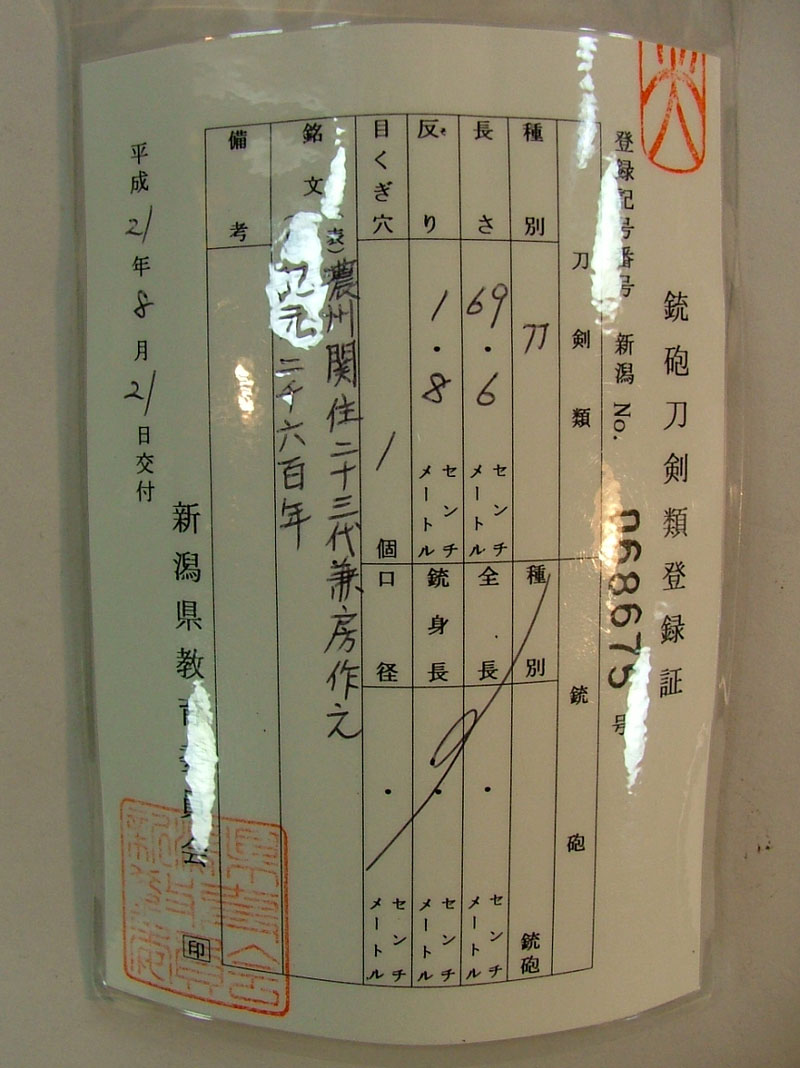 銃砲刀剣類登録証
登録記号番号 新潟 No. 068675 号
刀剣類
銃砲
種別 刀
長さ 69.6 センチメートル
反り 1.8 センチメートル
目くぎ穴 1 個
種別 銃砲
全長 . センチメートル
銃身長 . センチメートル
口径 . センチメートル
銘文 (表) 濃州関住二十三代兼房作之
紀元二千六百年
備考
平成21年8月21日交付
新潟県教育委員会 印